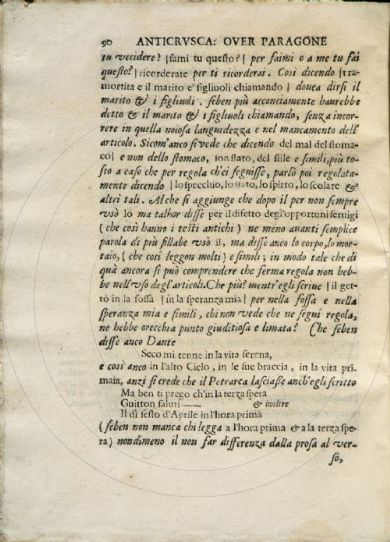 90 ANTICRVSCA: OVER PARAGONE
tu vccidere? | fami tu questo? | per faimi o a me tu fai
questo? | ricorderate per ti ricorderai. Così dicendo | tra-
mortita e il marito e' figliuoli chiamando | doueа dirsi il
marito & i figliuoli. seben più acconciamente haurebbe
detto & il marito & i figliuoli chiamando, senza incor-
rere in quella noiosa languidezza e nel mancamento dell'
articolo. Sicom'anco si vede che dicendo del mal del stoma-
co | e non dello stomaco, lo stile e simili, più to-
sto a caso che per regola ch'ei seguisse, parlò poi regolata-
mente dicendo | lo specchio, lo stato, lo spirto, lo scolare &
altri tali. Alche si aggiunge che dopo il per non sempre
vsò lo ma talhor disse per il difetto degl'opportuni seruigi
( che così hanno i testi antichi ) ne meno auanti semplice
parola di più sillabe vsò il, ma disse anco lo corpo, lo mor-
taio, ( che così leggon molti ) e simili; in modo tale che di
quà ancora si può comprendere che ferma regola non heb-
be nell'vso degl'articoli. Che più? mentr'egli scriue | il get-
tò in la fossa | in la speranza mia | per nella fossa e nella
speranza mia e simili, chi non vede che ne seguì regola,
ne hebbe orecchia punto giuditiosa e limata? Che seben
disse anco Dante
Seco mi tenne in la vita serena,
e così anco in l'alto Cielo, in le sue braccia, in la vita pri-
maia, anzi si crede che il Petrarca lasciasse anch'egli scritto
Ma ben ti prego ch'in la terza spera
Guitton saluti —— & inoltre
Il dì sesto d'Aprile in l'hora prima
( seben non manca chi legga a l'hora prima & a la terza spe-
ra ) nondimeno il non far differenza dalla prosa al ver-
so,